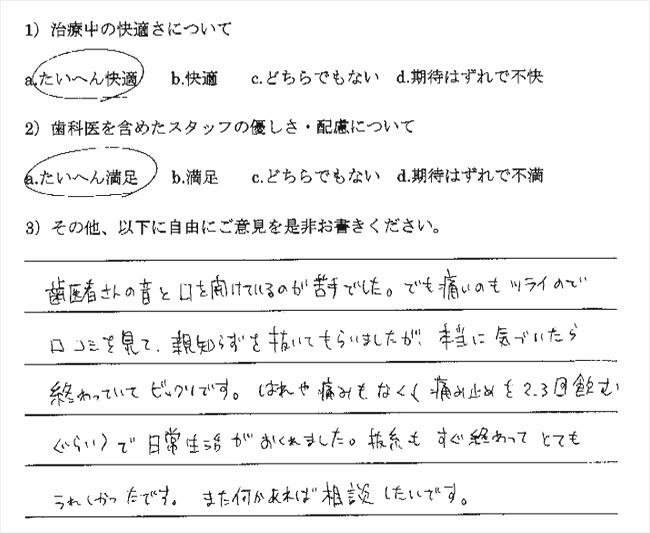 1) 治療中の快適さについて
a.たいへん快適 b.快適 c.どちらでもない d.期待はずれで不快
2) 歯科医を含めたスタッフの優しさ・配慮について
a.たいへん満足 b.満足 c.どちらでもない d.期待はずれで不満
3) その他、以下に自由にご意見を是非お書きください。
歯医者さんの音と口を開けているのが苦手でした。でも痛いのもツライので
口コミを見て、親知らずを抜いてもらいましたが、本当に気づいたら
終わっていてビックリです。はれや痛みもなく(痛み止めを2.3回飲む
ぐらい)で日常生活がおくれました。抜糸もすぐ終わってとても
うれしかったです。また何かあれば相談したいです。